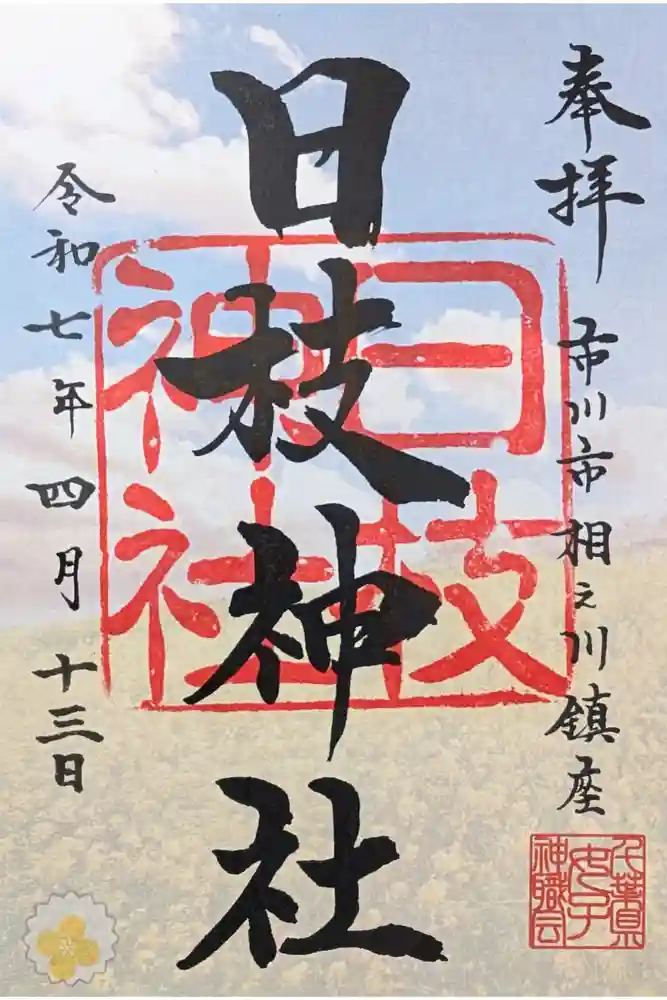 奉拝
市川市相之川鎮座
日枝神社
日枝
神社
令和七年四月十三日
千葉県
女子
神職会